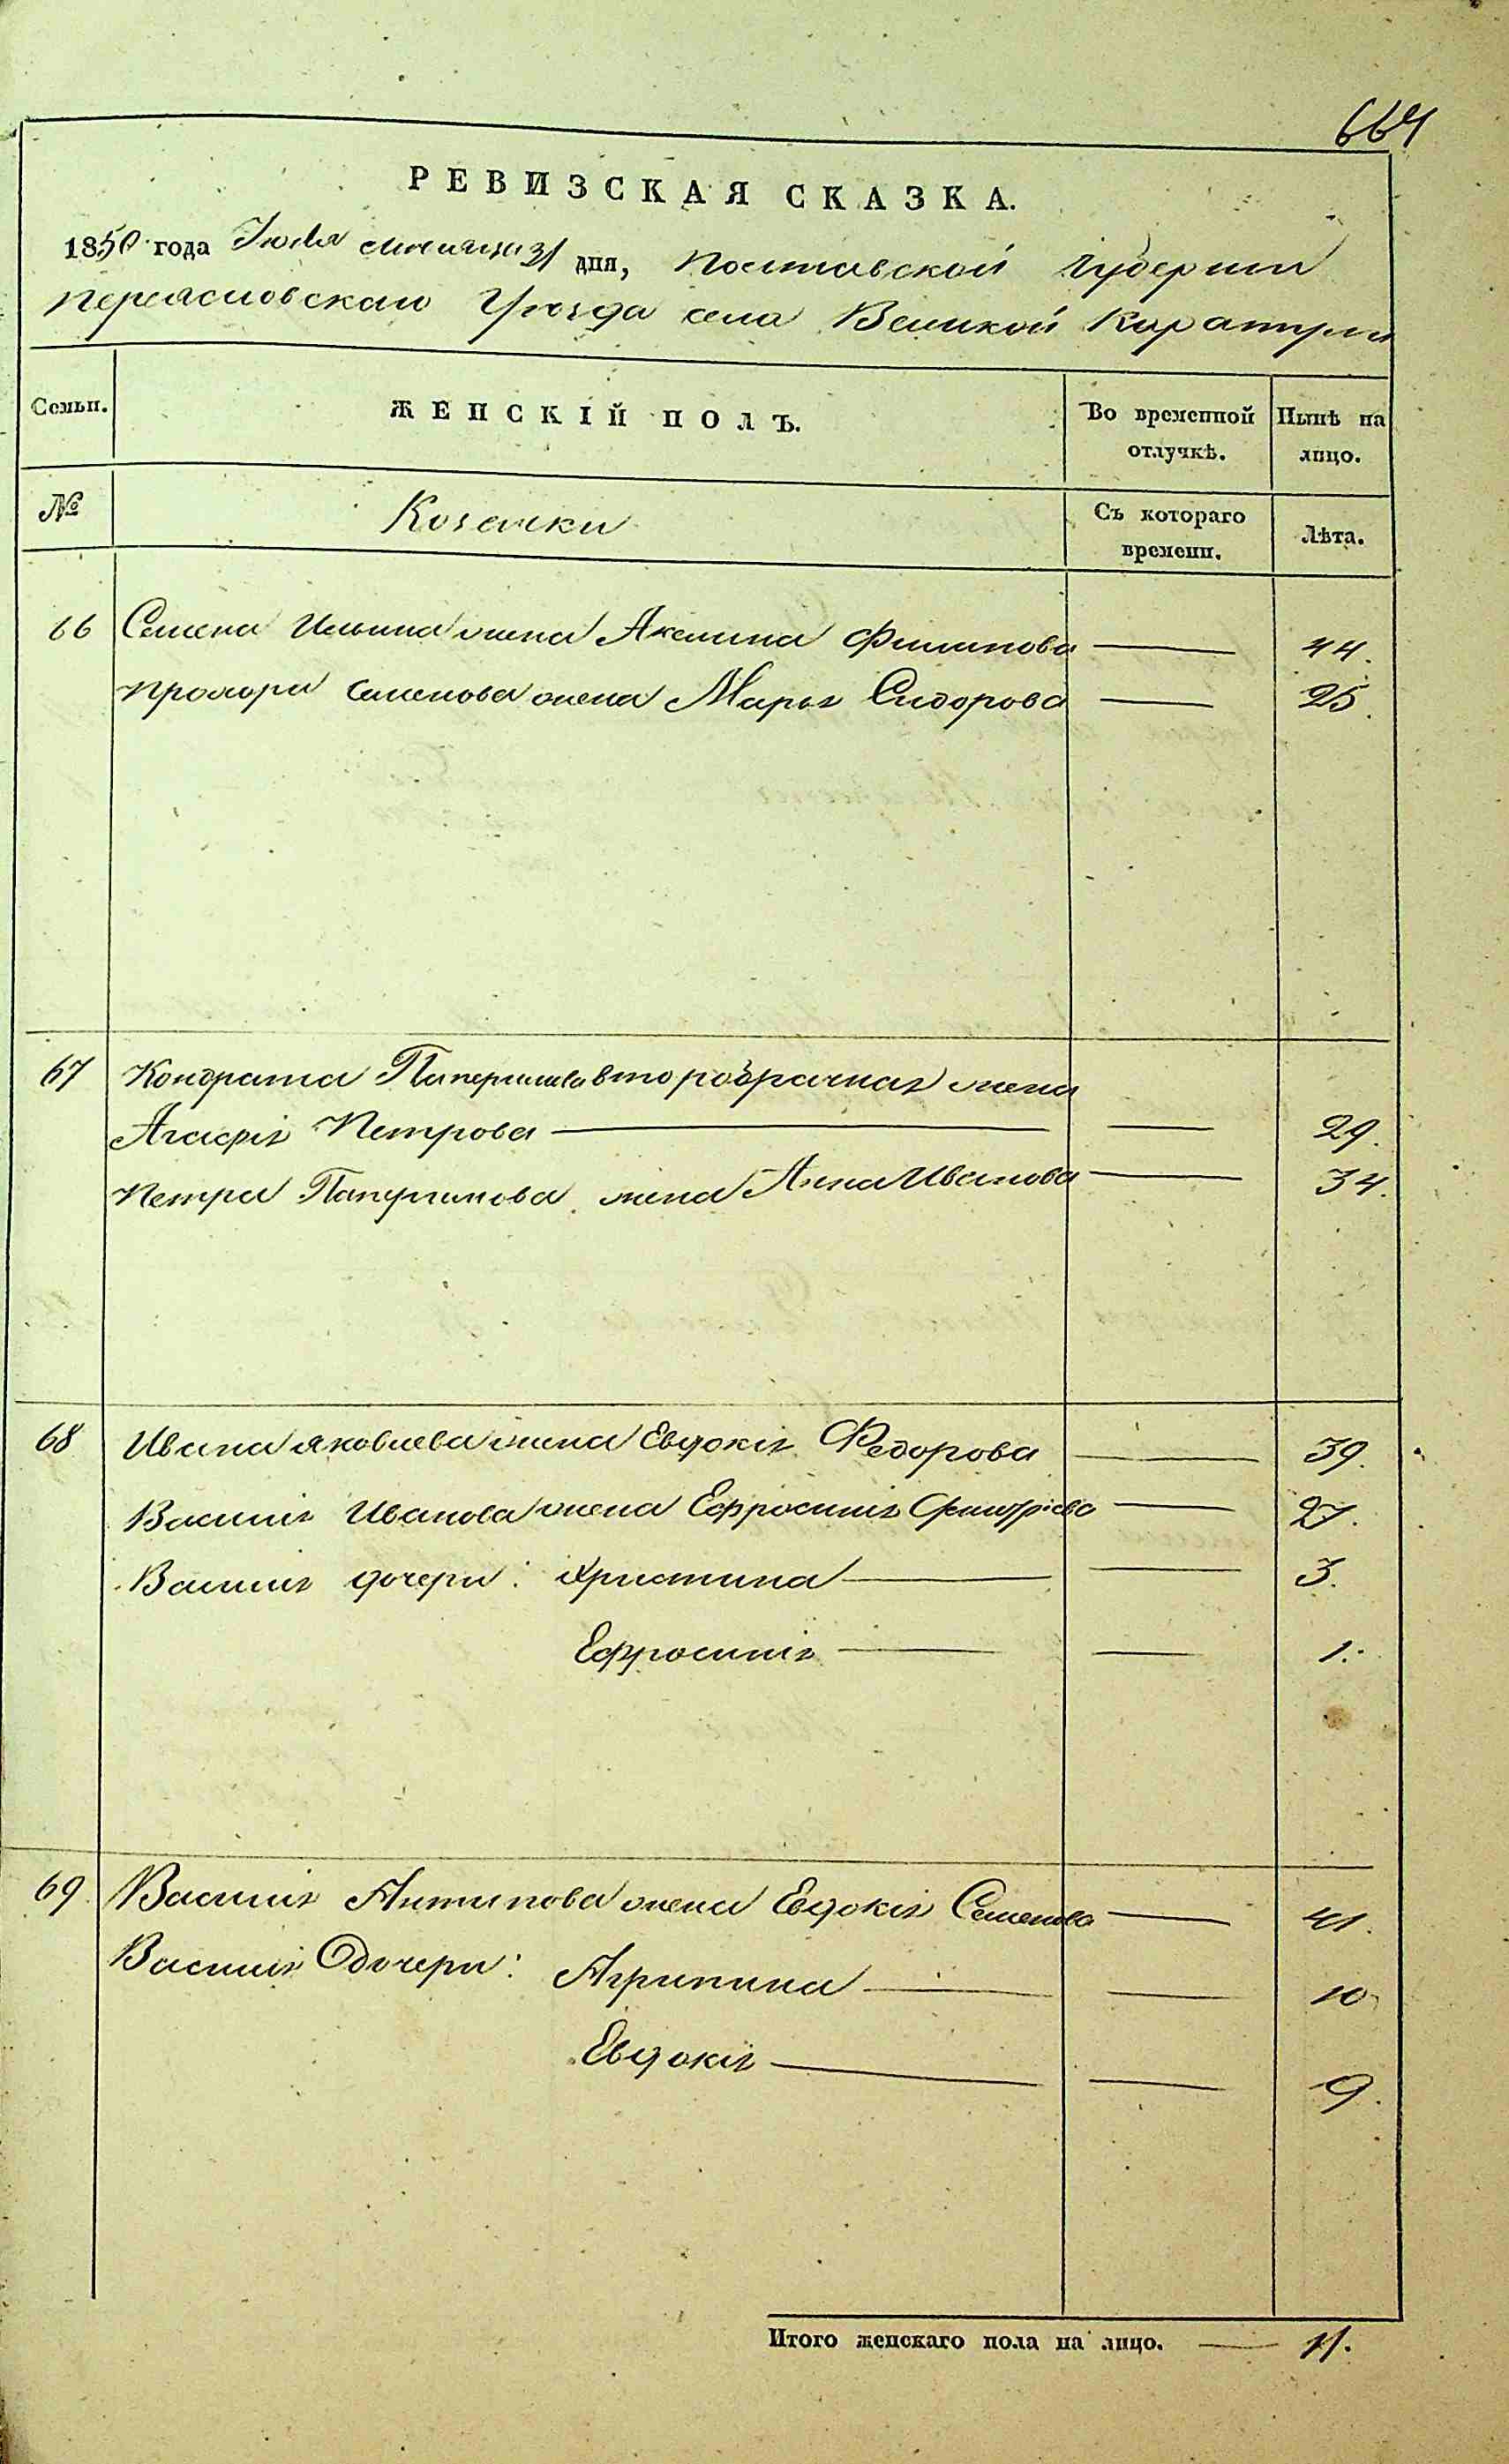 664
РЕВИЗСКАЯ СКАЗКА.
1850 года Июля месяца 31 дня, Полтавской Губернии
Переясловскаго Уезда села Великой Каратули
Семьи. ЖЕНСКІЙ ПОЛЪ. Во временной отлучкѣ. Нынѣ на лицо.
№ Козачки Съ котораго времени. Лѣта.
66 Семена Ильина жена Акелина Филипова — 44.
Прохора Семенова жена Марья Сидорова — 25.
67 Кондрата второбрачная жена
Агафія Петрова — 29.
Петра жена Анна Иванова — 34.
68 Ивана Яковлева жена Евдокія Федорова — 39.
Василія Иванова жена Ефросинія — 27.
Василія дочери: Христина — 3.
Ефросинія — 1.
69 Василія Антипова жена Евдокія Семенова — 41.
Василія дочери: Агрипина — 10
Евдокія — 9.
Итого женскаго пола на лицо. — 11.